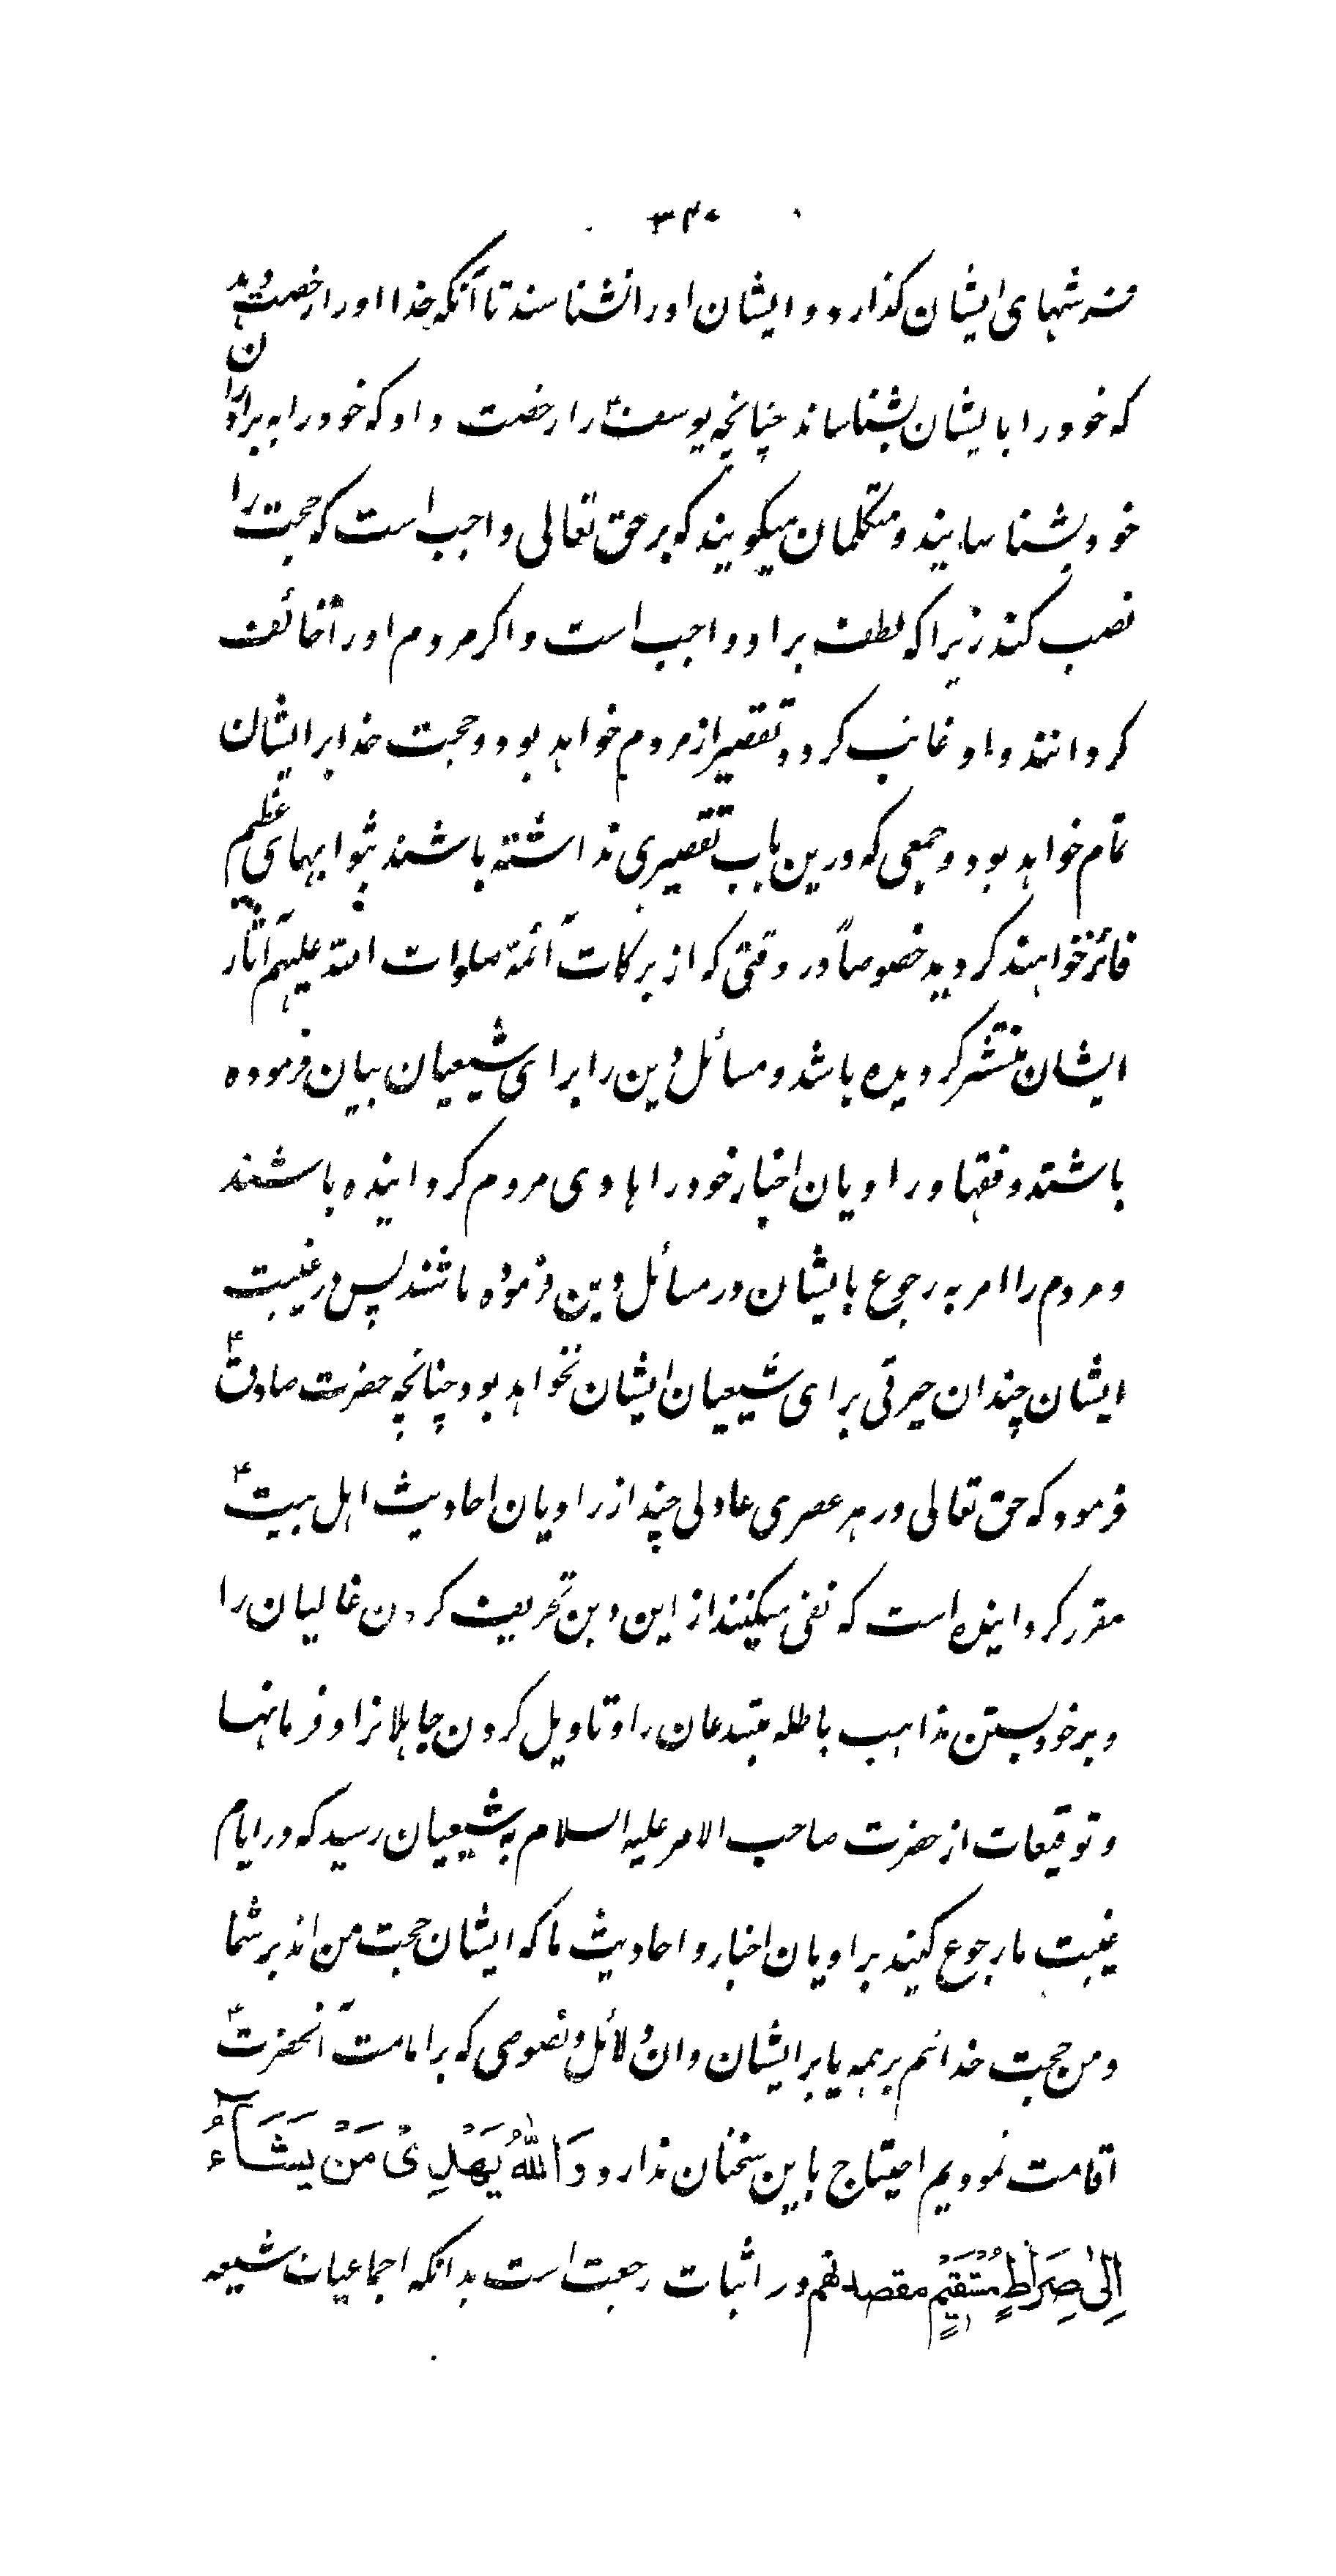 ۳۴۰
فرشهای ایشان کذارد و ایشان اورا نشناسند تا آنکه خدا اورا رخصت دهد
که خود را بایشان بشناساند چنانچه یوسف۴ را رخصت داد که خود را به برادران
خود بشناسایند و متکلمان میکویند که بر حق تعالی واجب است که حجت را
نصب کند زیرا که لطف بر او واجب است و اکر مردم اورا خائف
کردانند و او غایب کردد تقصیر از مردم خواهد بود و حجت خدا بر ایشان
تمام خواهد بود و جمعی که درین باب تقصیری نداشته باشند بثوابهای عظیم
فائز خواهند کردید خصوصاً در وقتی که از برکات ائمّه صلوات الله علیهم آثار
ایشان منتشر کردیده باشد و مسائل دین را برای شیعیان بیان فرموده
باشند و فقها و راویان اخبار خود را هادی مردم کردانیده باشند
و مردم را امر به رجوع بایشان در مسائل دین فرموده باشند پس در غیبت
ایشان چندان حیرتی برای شیعیان ایشان نخواهد بود چنانچه حضرت صادق۴
فرمود که حق تعالی در هر عصری عادلی چند از راویان احادیث اهل بیت۴
مقرر کردانیده است که نفی میکنند از این دین تحریف کردن غالیان را
و بر خود بستن مذاهب باطله مبتدعان را و تاویل کردن جاهلانرا و فرمانها
و توقیعات از حضرت صاحب الامر علیه السلام به شیعیان رسید که در ایام
غیبت ما رجوع کنید براویان اخبار و احادیث ما که ایشان حجت من اند بر شما
و من حجت خدائم بر همه یا بر ایشان و ان دلائل و نصوصی که بر امامت آنحضرت۴
اقامت نمودیم احتیاج باین سخنان ندارد وَاللهُ یَهْدِیْ مَنْ یَشَآءُ
اِلیٰ صِرَاطٍ مُسْتَقِیْمٍ مقصد نهم در اثبات رجعت است بدانکه اجماعیات شیعه